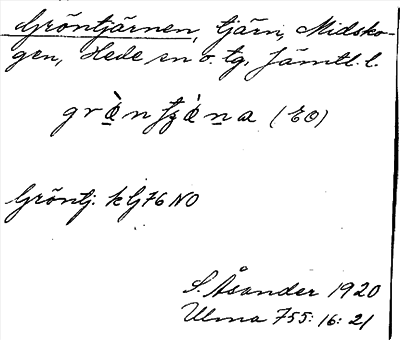 Gröntjärnen, tjärn, Midsko-
gen, Hede sn o. tg, Jämtl. l.
(EO)
Gröntj. k Gj76 NO
S. Åsander 1920
Ulma 755: 16: 21